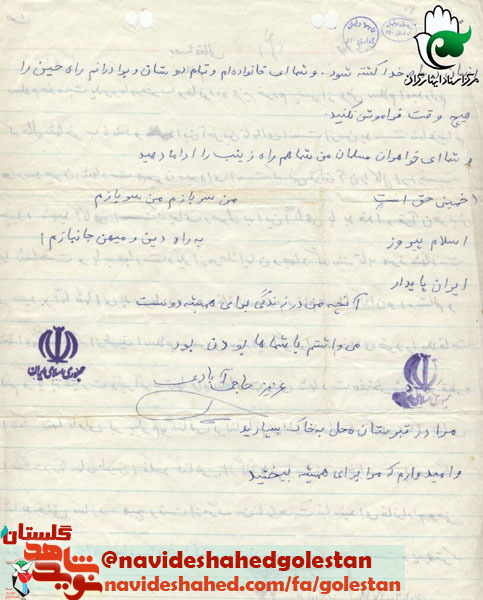 مرکز اسناد ایثارگران
خدا کشته شود. و شما ای خانواده‌ام و تمام دوستان و برادرانم راه حسین را
هیچ وقت فراموش نکنید.
و شما ای خواهران مسلمان من شما هم راه زینب را ادامه دهید
(خمینی حق است من سربازم من سربازم
اسلام پیروز به راه دین و میهن جانبازم)
ایران پایدار
آنچه من در زندگی برای همیشه دوست
می‌داشتم با شماها بودن بود
عزیز حاجی آبادی
جمهوری اسلامی ایران
جمهوری اسلامی ایران
مرا در قبرستان محل به خاک بسپارید
و امیدوارم که مرا برای همیشه ببخشید
نوید شاهد گلستان
@navideshahedgolestan
navideshahed.com/fa/golestan